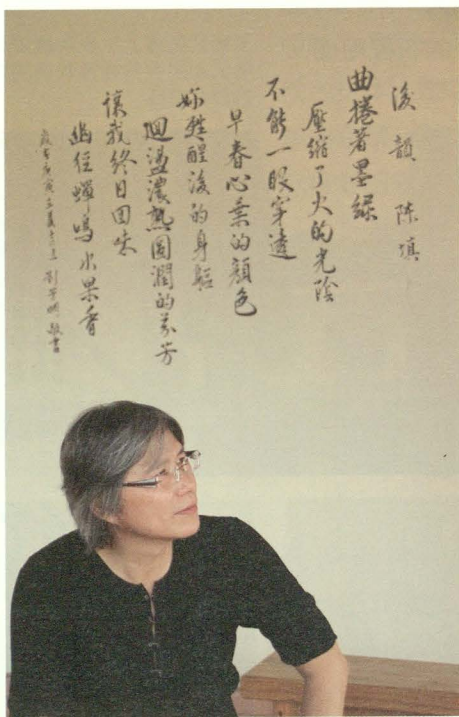 後韻 陳填
曲捲著墨綠
壓縮了火的光陰
不能一眼穿透
早春心葉的顏色
妳甦醒後的身軀
迴盪濃熟圓潤的芬芳
讓我終日回味
幽徑蟬鳴水果香
庚寅 劉 明敬書